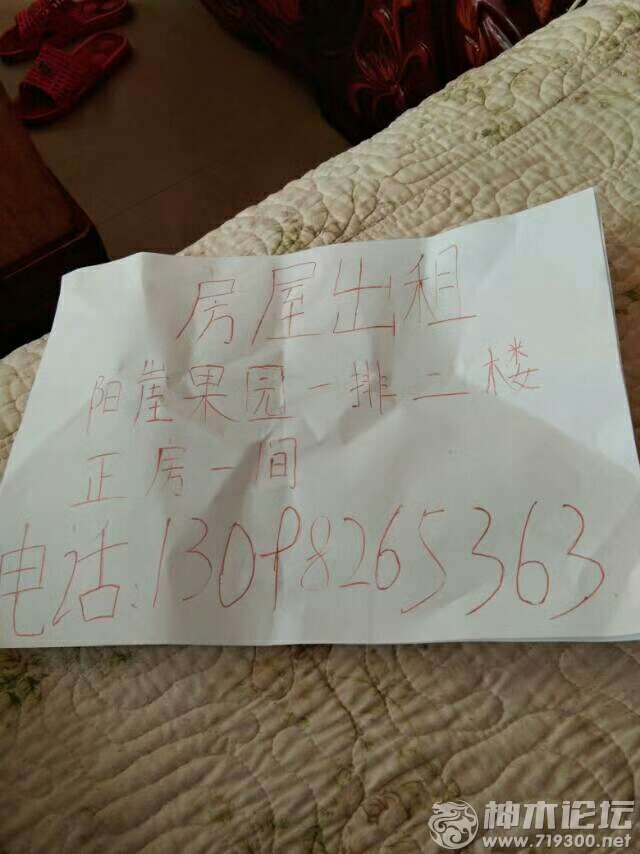 房屋出租
阳崖果园一排二楼
正房一间
电话:13098265363
神木论坛
www.719300.net